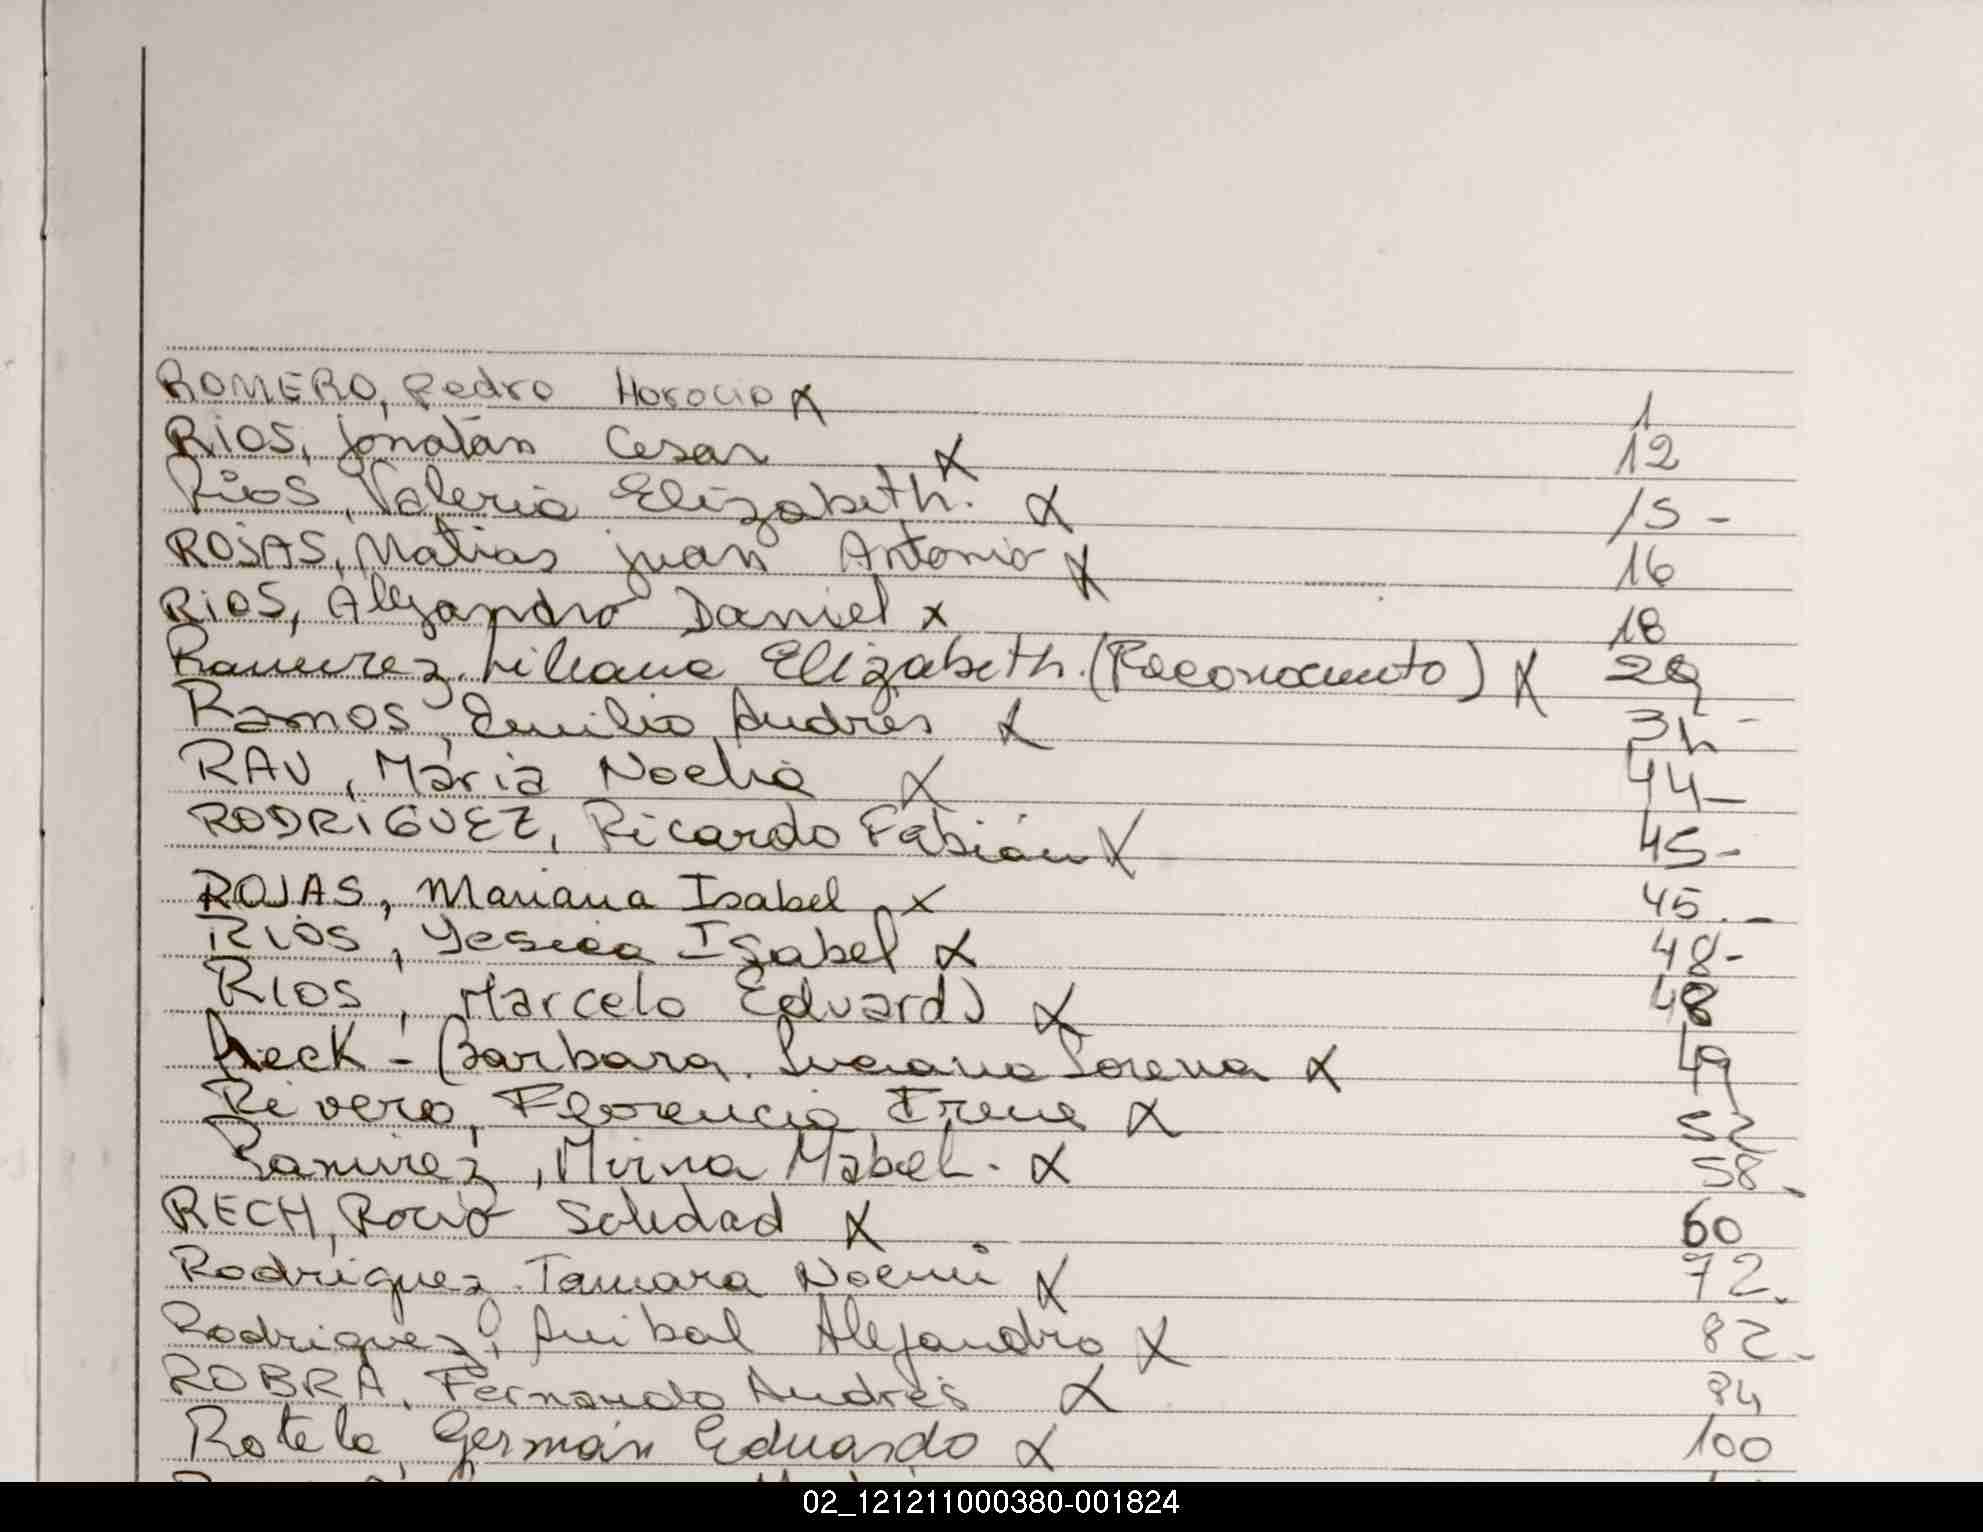 ROMERO, Pedro Horacio X 1
RIOS, Jonatán Cesar X 12
Rios, Valeria Elizabeth. X 15-
ROJAS, Matias Juan Antonio X 16
RIOS, Alejandro Daniel x 18
Ramirez, Liliana Elizabeth. (Reconocimto) X 29
Ramos, Emilio Andres X 34-
RAU, María Noelia X 44-
RODRIGUEZ, Ricardo Fabián X 45-
ROJAS, Mariana Isabel X 45.-
RIOS, Yesica Isabel X 48-
RIOS, Marcelo Eduardo X 48
Reck - Barbara Luciana Lorena X 49
Rivero, Florencia Irene X 52
Ramirez, Mirna Mabel. X 58-
RECH, Rocio Soledad X 60
Rodriguez Tamara Noemi X 72.
Rodriguez, Anibal Alejandro X 82-
ROBRA, Fernando Andrés X 84
Rotela, Germán Eduardo X 100
02_121211000380-001824